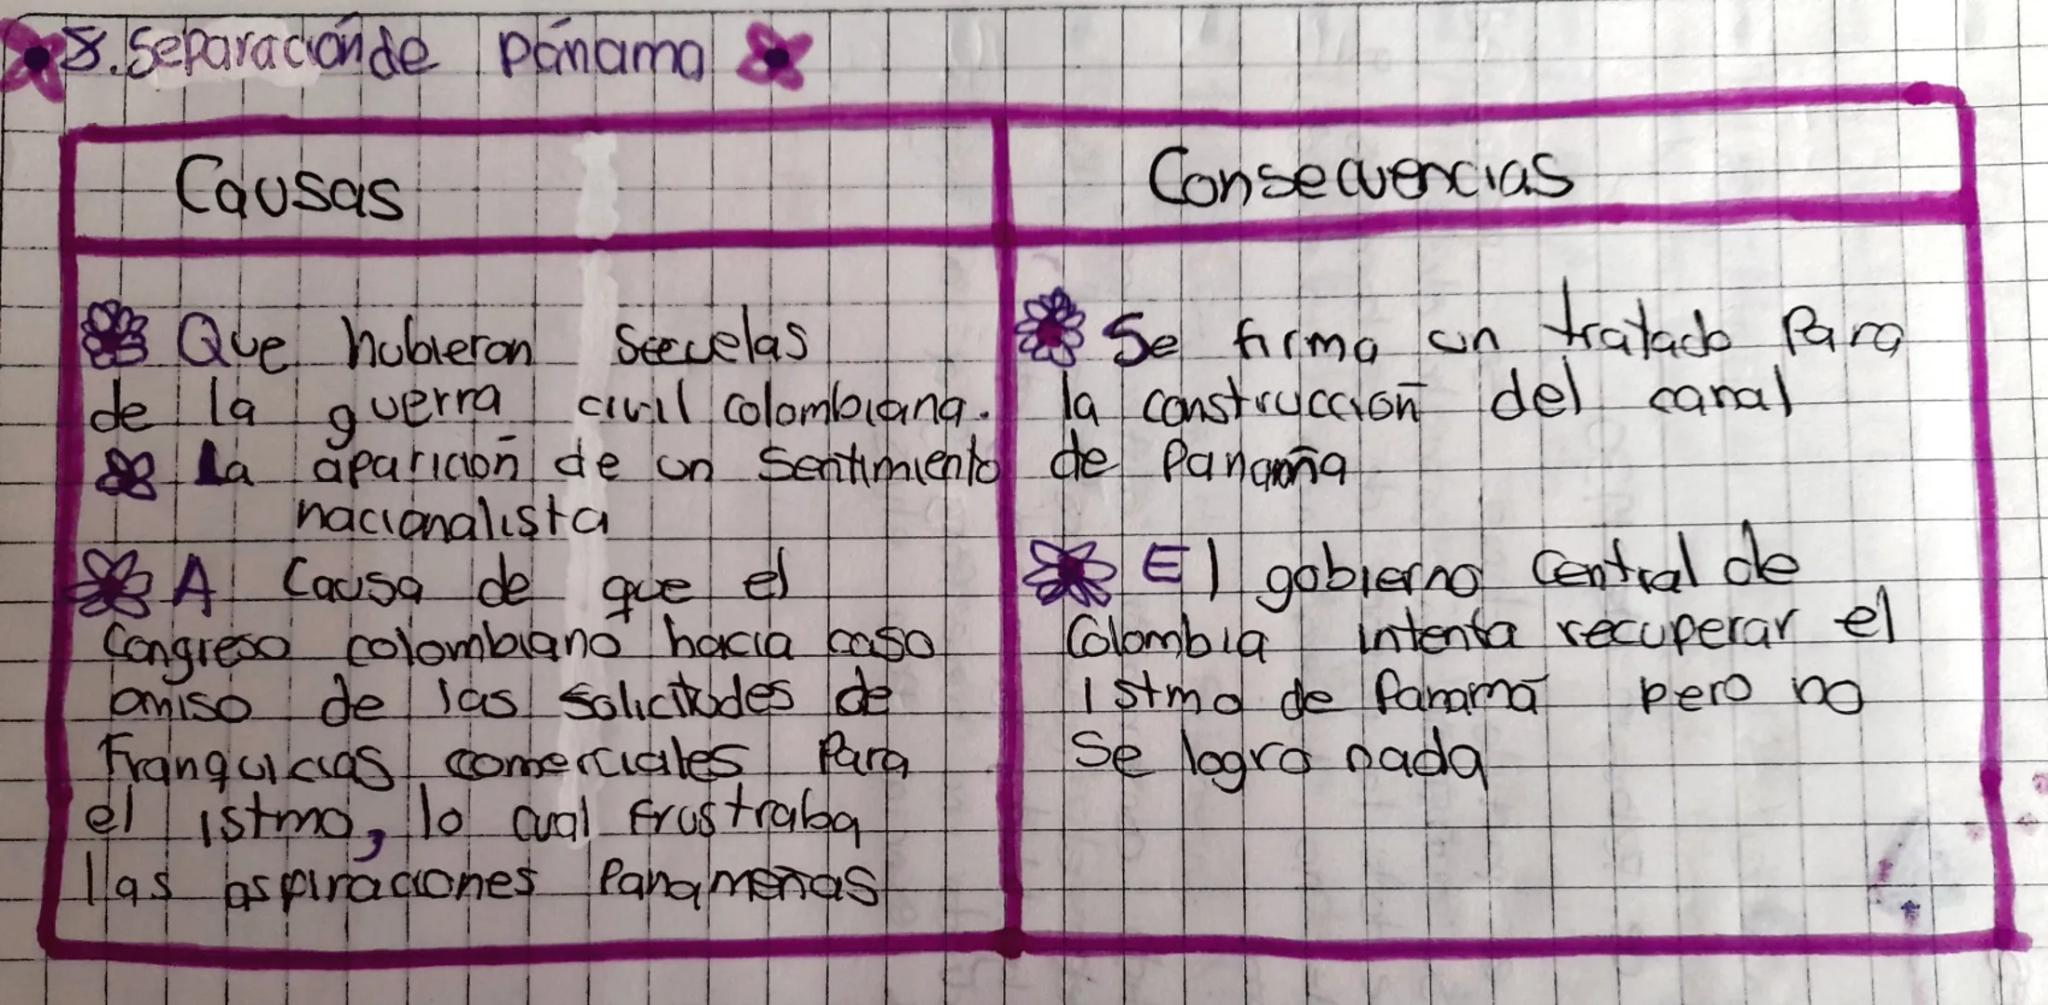 8. Separación de Pánama
Causas
Que hubieron Secuelas
de la guerra civil colombiana.
La aparición de un sentimiento
nacionalista
A Causa de que el
Congreso colombiano hacia caso
omiso de las solicitudes de
Franquicias comerciales Para
el istmo, lo cual frustraba
las aspiraciones Panameñas
Consecuencias
Se firma un tratado Para
la construcción del canal
de Panamá
El gobierno Central de
Colombia intenta recuperar el
istmo de Panamá pero no
se logro nada